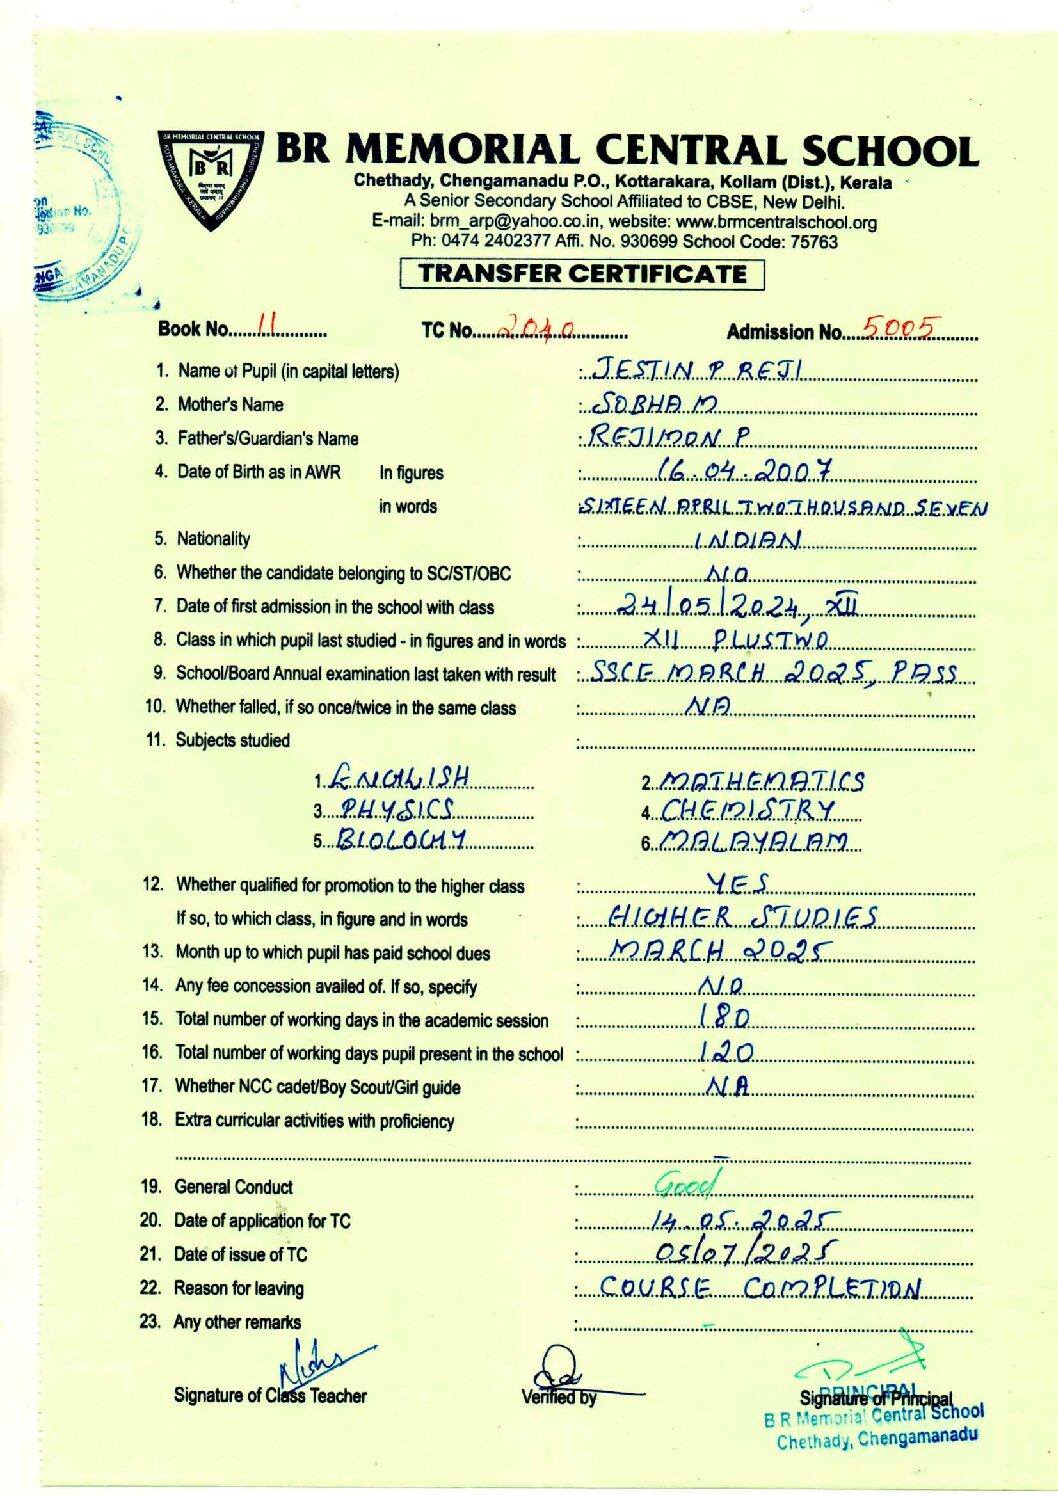 BR MEMORIAL CENTRAL SCHOOL
BR MEMORIAL CENTRAL SCHOOL
B R
Chethady, Chengamanadu P.O., Kottarakara, Kollam (Dist.), Kerala
A Senior Secondary School Affiliated to CBSE, New Delhi.
E-mail: brm_arp@yahoo.co.in, website: www.brmcentralschool.org
Ph: 0474 2402377 Affi. No. 930699 School Code: 75763
TRANSFER CERTIFICATE
Book No. 11 TC No. 2040 Admission No. 5005
1. Name of Pupil (in capital letters) : JESTIN P REJI
2. Mother's Name : SOBHA M
3. Father's/Guardian's Name : REJIMON P
4. Date of Birth as in AWR In figures : 16.04.2007
in words : SIXTEEN APRIL TWO THOUSAND SEVEN
5. Nationality : INDIAN
6. Whether the candidate belonging to SC/ST/OBC : NO
7. Date of first admission in the school with class : 24/05/2024, XII
8. Class in which pupil last studied - in figures and in words : XII PLUSTWO
9. School/Board Annual examination last taken with result : SSCE MARCH 2025, PASS
10. Whether falled, if so once/twice in the same class : NA
11. Subjects studied :
1. ENGLISH 2. MATHEMATICS
3. PHYSICS 4. CHEMISTRY
5. BIOLOGY 6. MALAYALAM
12. Whether qualified for promotion to the higher class : YES
If so, to which class, in figure and in words : HIGHER STUDIES
13. Month up to which pupil has paid school dues : MARCH 2025
14. Any fee concession availed of. If so, specify : NO
15. Total number of working days in the academic session : 180
16. Total number of working days pupil present in the school : 120
17. Whether NCC cadet/Boy Scout/Girl guide : NA
18. Extra curricular activities with proficiency :
19. General Conduct : Good
20. Date of application for TC : 14.05.2025
21. Date of issue of TC : 05/07/2025
22. Reason for leaving : COURSE COMPLETION
23. Any other remarks : –
Signature of Class Teacher Verified by Signature of Principal
PRINCIPAL
B R Memorial Central School
Chethady, Chengamanadu